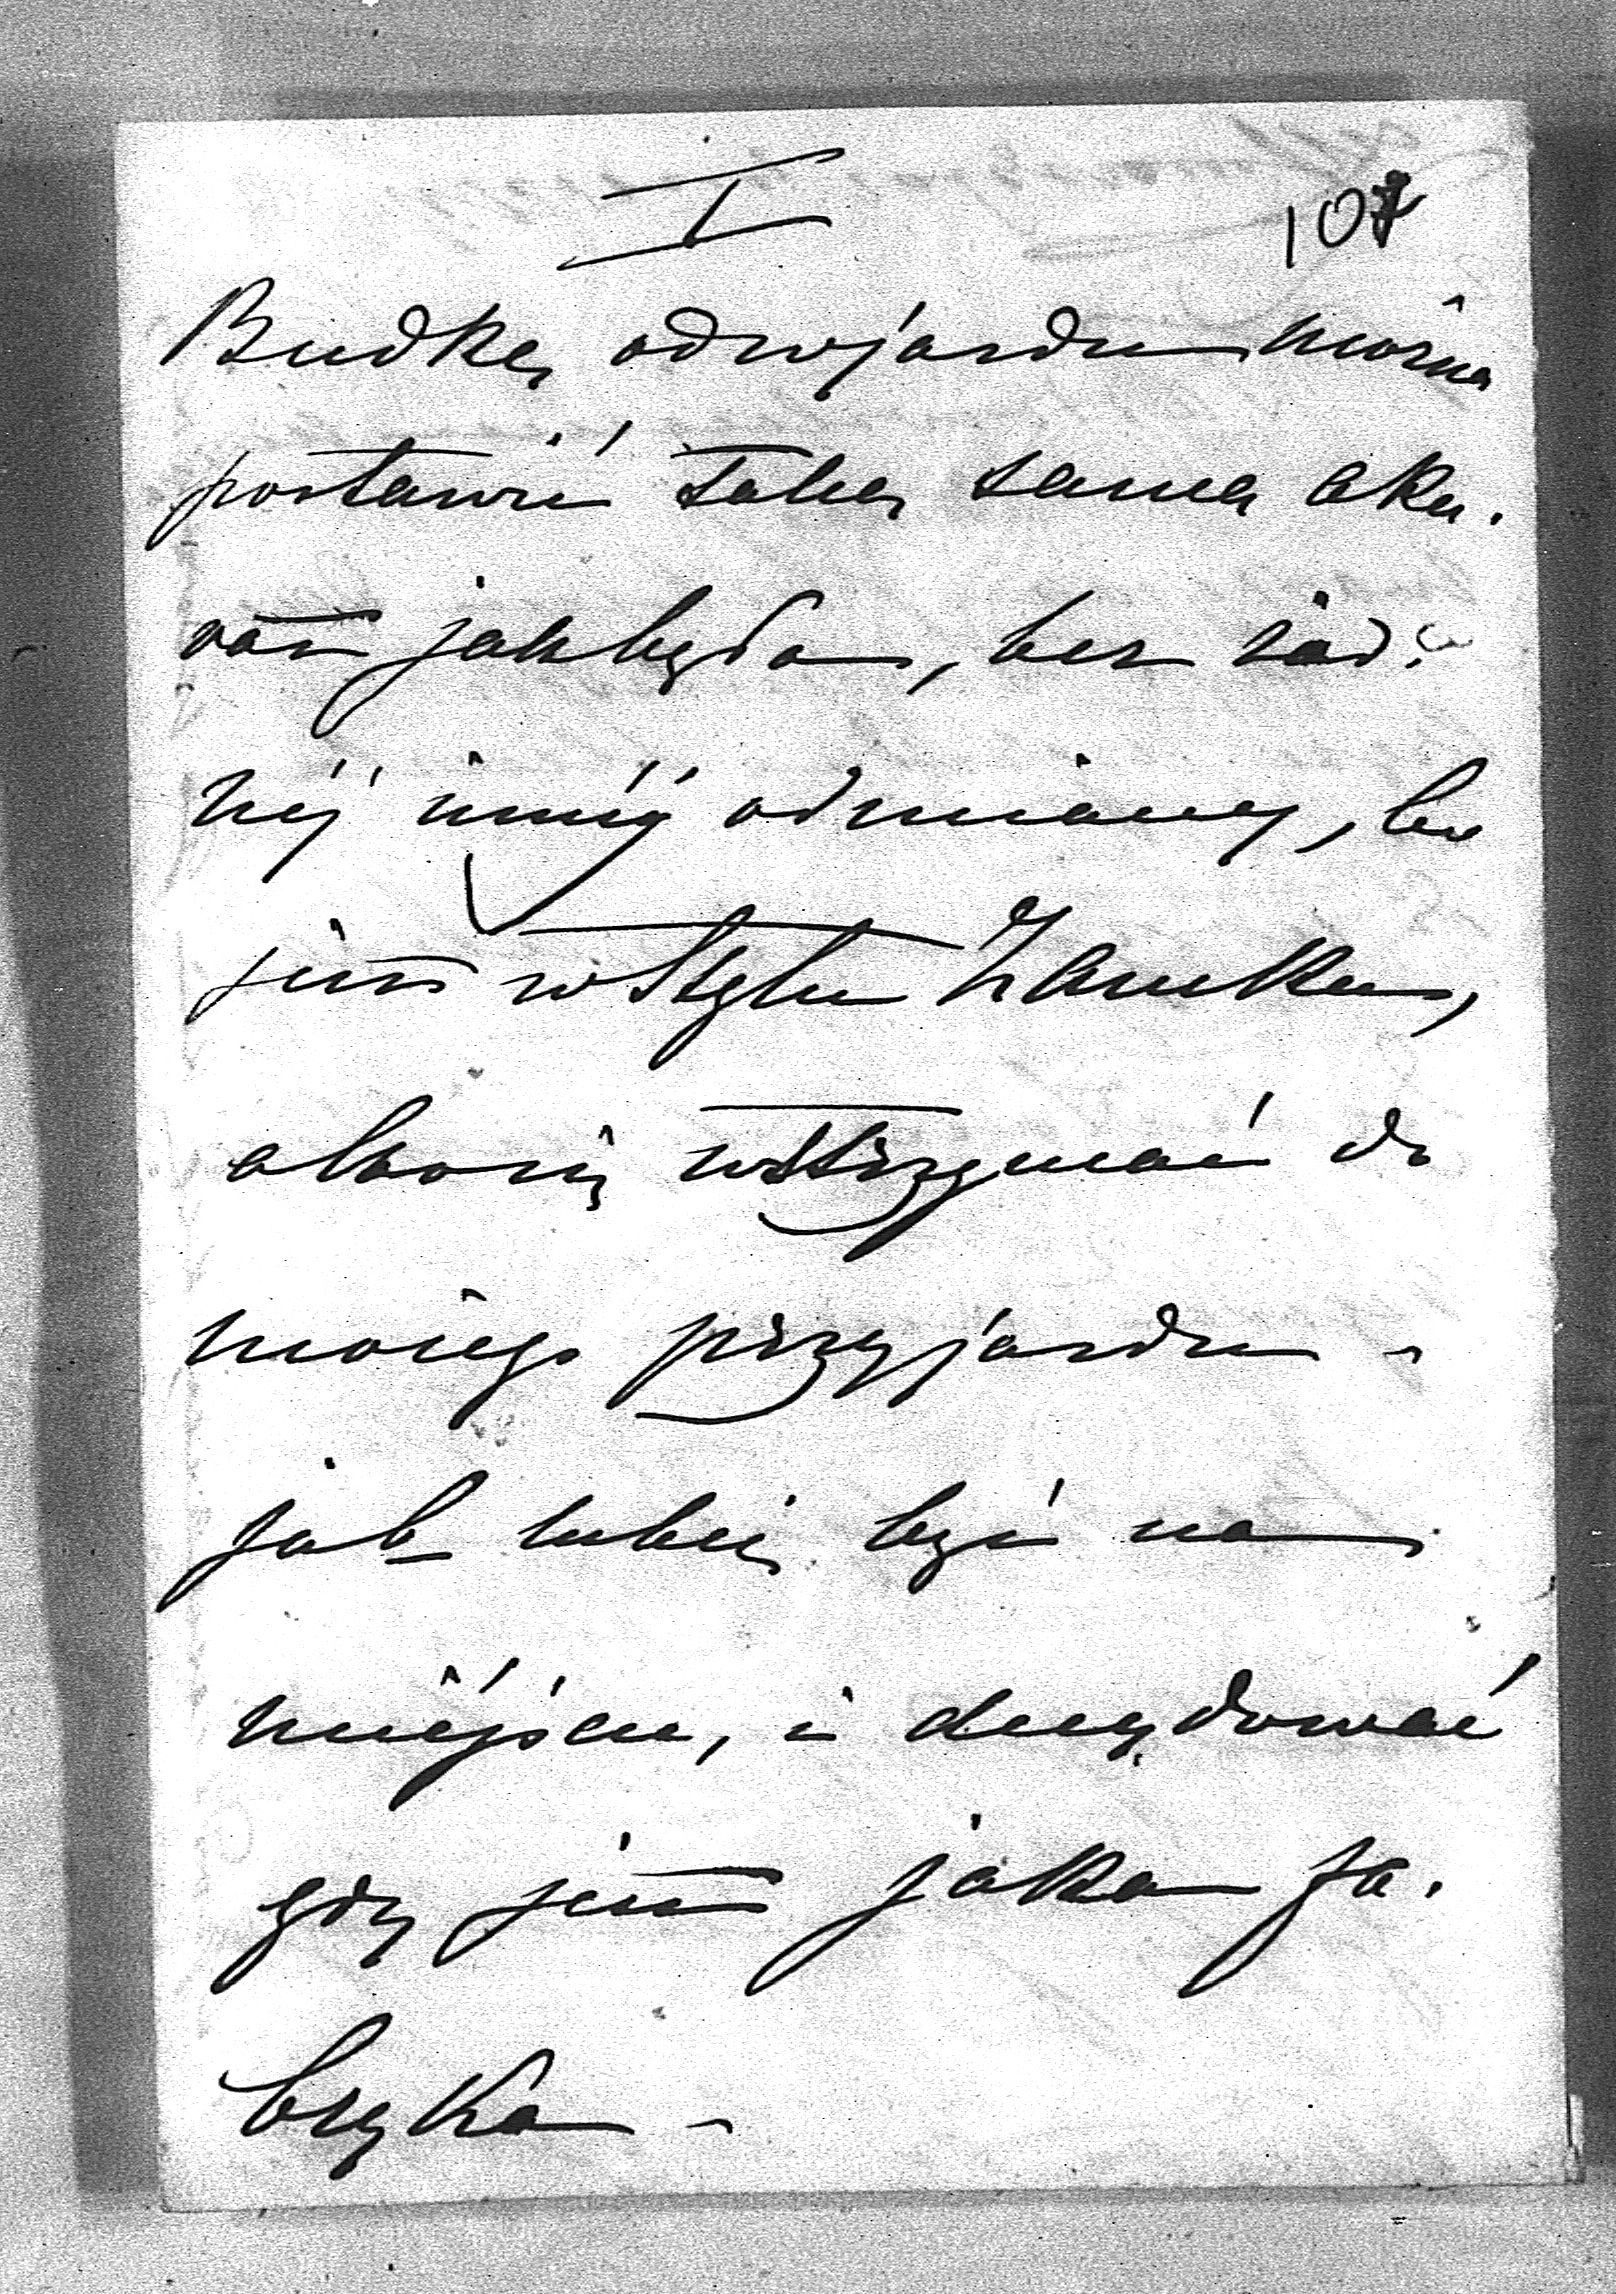 I
107
Budkę od wjazdu można
postawić taką samą aku-
rat jak była, bez żad-
néj innéj odmiany, bo
jest w stylu Zamku,
albo ją wstrzymać do
mojego przyjazdu -
jak lubię być na
miéjscu, i decydować
gdy jest jaka fa-
bryka -